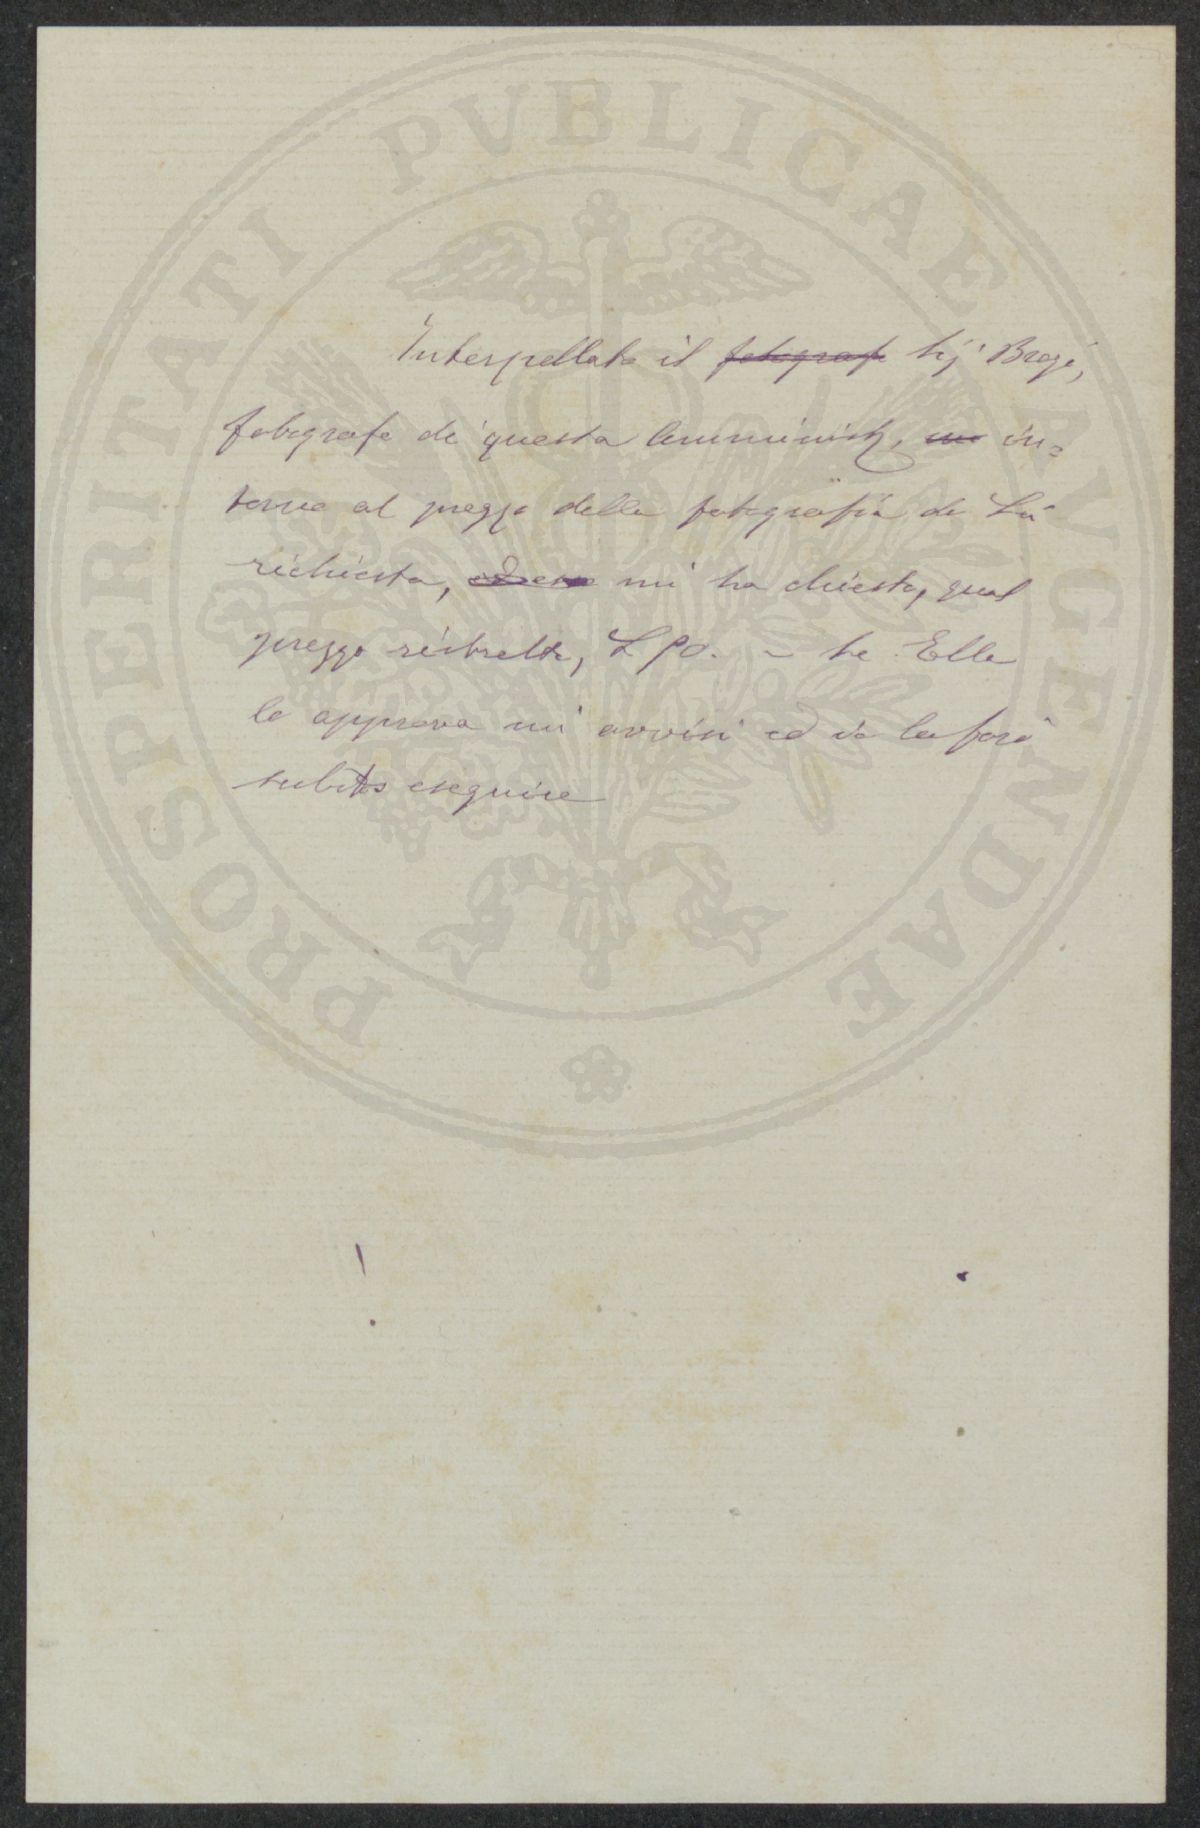 PROSPERITATI PUBLICAE AUGENDAE
Interpellato il fotografo Sig. Brogi,
fotografo di questa Amministr., in=
torno al prezzo della fotografia da Lei
richiesta, mi ha chiesto, qual
prezzo ristretto, L 90. – Se Ella
lo approva mi avvisi ed io la farò
subito eseguire